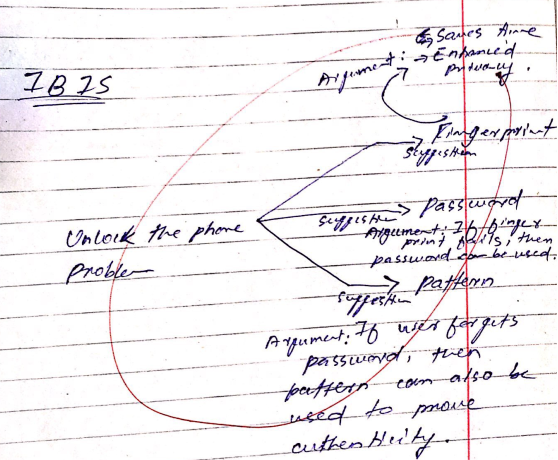 IBIS
Argument: → Saves time
→ Enhanced
privacy.
Fingerprint
suggestion
Unlock the phone
Problem
suggestion
Password
Argument: If finger
print fails, then
password can be used.
suggestion
Pattern
Argument: If user forgets
password, then
pattern can also be
used to prove
authenticity.